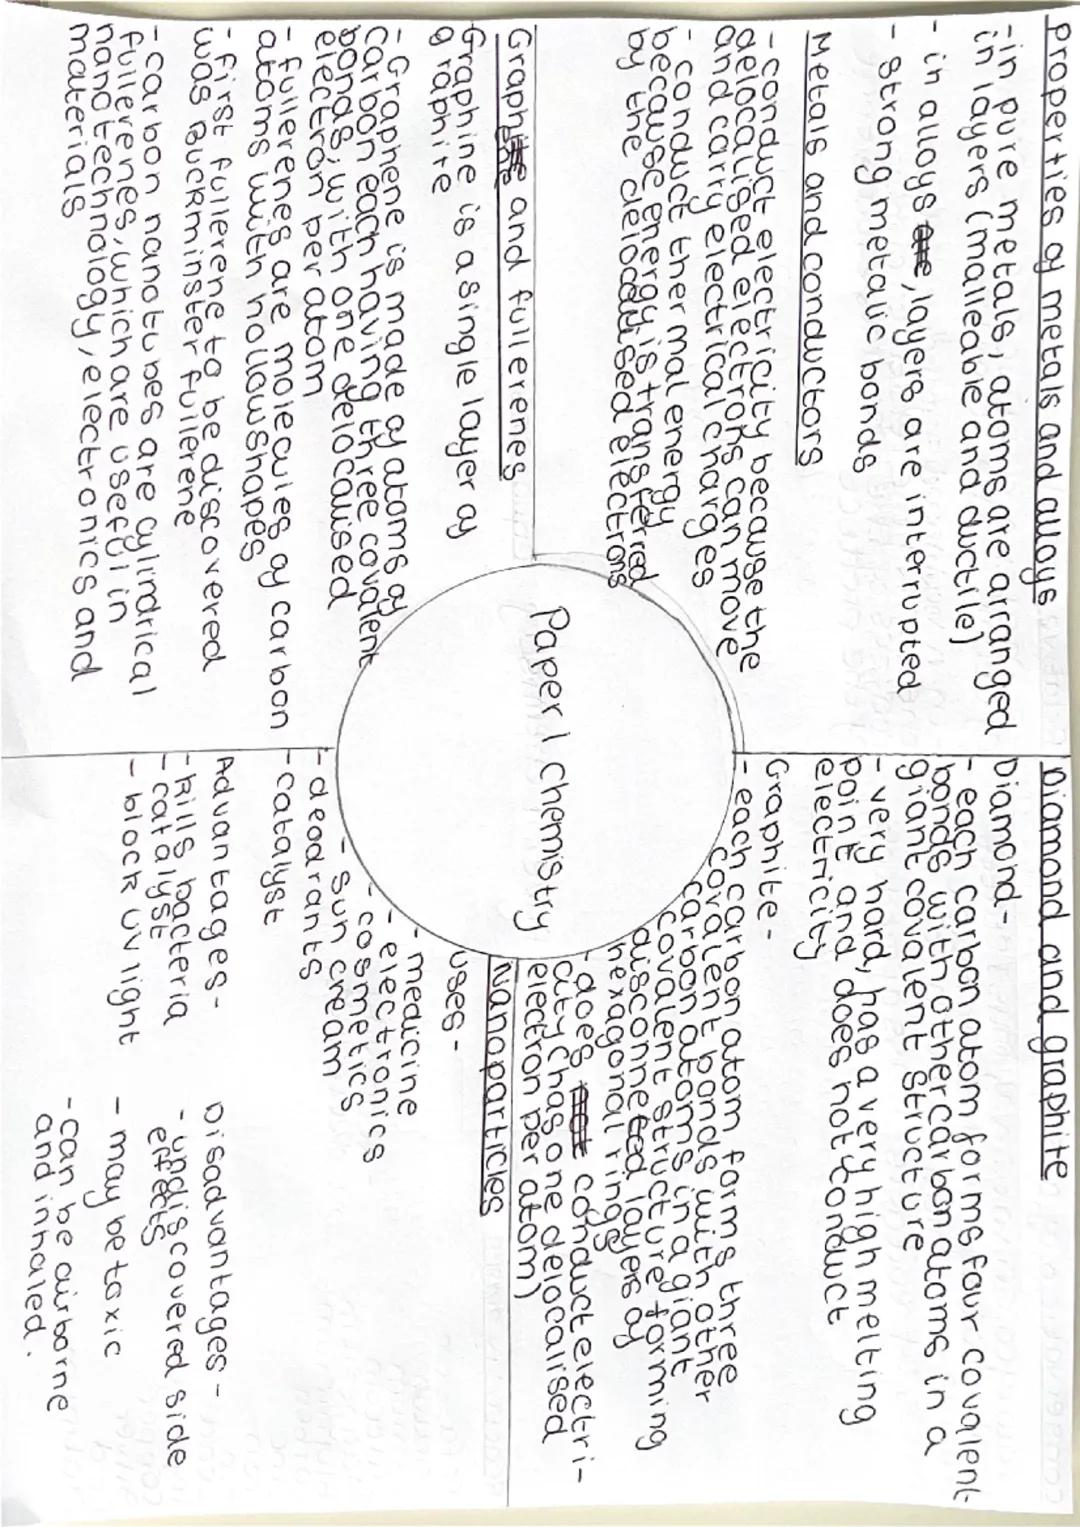 Properties of metals and alloys
- in pure metals, atoms are arranged
in layers (malleable and ductile)
- in alloys, layers are interrupted
- strong metallic bonds
Metals and conductors
- conduct electricity because the
delocalised electrons can move
and carry electrical charges
- conduct thermal energy
because energy is transferred
by the delocalised electrons
Diamond and graphite
Diamond-
- each carbon atom forms four covalent
bonds with other carbon atoms in a
giant covalent structure
- very hard, has a very high melting
point and does not conduct
electricity
Graphite-
- each carbon atom forms three
covalent bonds with other
carbon atoms in a giant
covalent structure forming
disconnected layers of
hexagonal rings
- does conduct electri-
city (has one delocalised
electron per atom)
Paper 1 Chemistry
Graphene and fullerenes
Graphine is a single layer of
graphite
- Graphene is made of atoms of
carbon each having three covalent
bonds, with one delocalised
electron per atom
- fullerenes are molecules of carbon
atoms with hollow shapes
- first fullerene to be discovered
was Buckminster fullerene
- carbon nanotubes are cylindrical
fullerenes, which are useful in
nanotechnology, electronics and
materials
Nanoparticles
uses-
- medicine
- electronics
- cosmetics
- sun cream
- deodrants
- catalyst
Advantages-
- kills bacteria
- catalyst
- block UV light
Disadvantages-
- undiscovered side
effects
- may be toxic
- can be airborne
and inhaled.